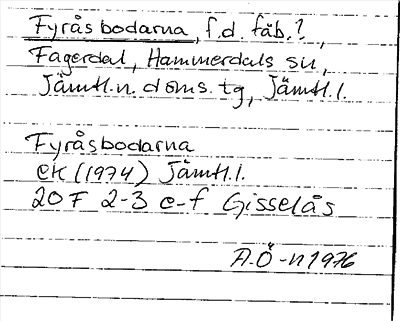 Fyråsbodarna, f.d. fäb.?,
Fagerdal, Hammerdals sn,
Jämtl.n. doms.tg, Jämtl.l.
Fyråsbodarna
EK (1974) Jämtl.l.
20 F 2-3 e-f Gisselås
A-Ö-n 1976